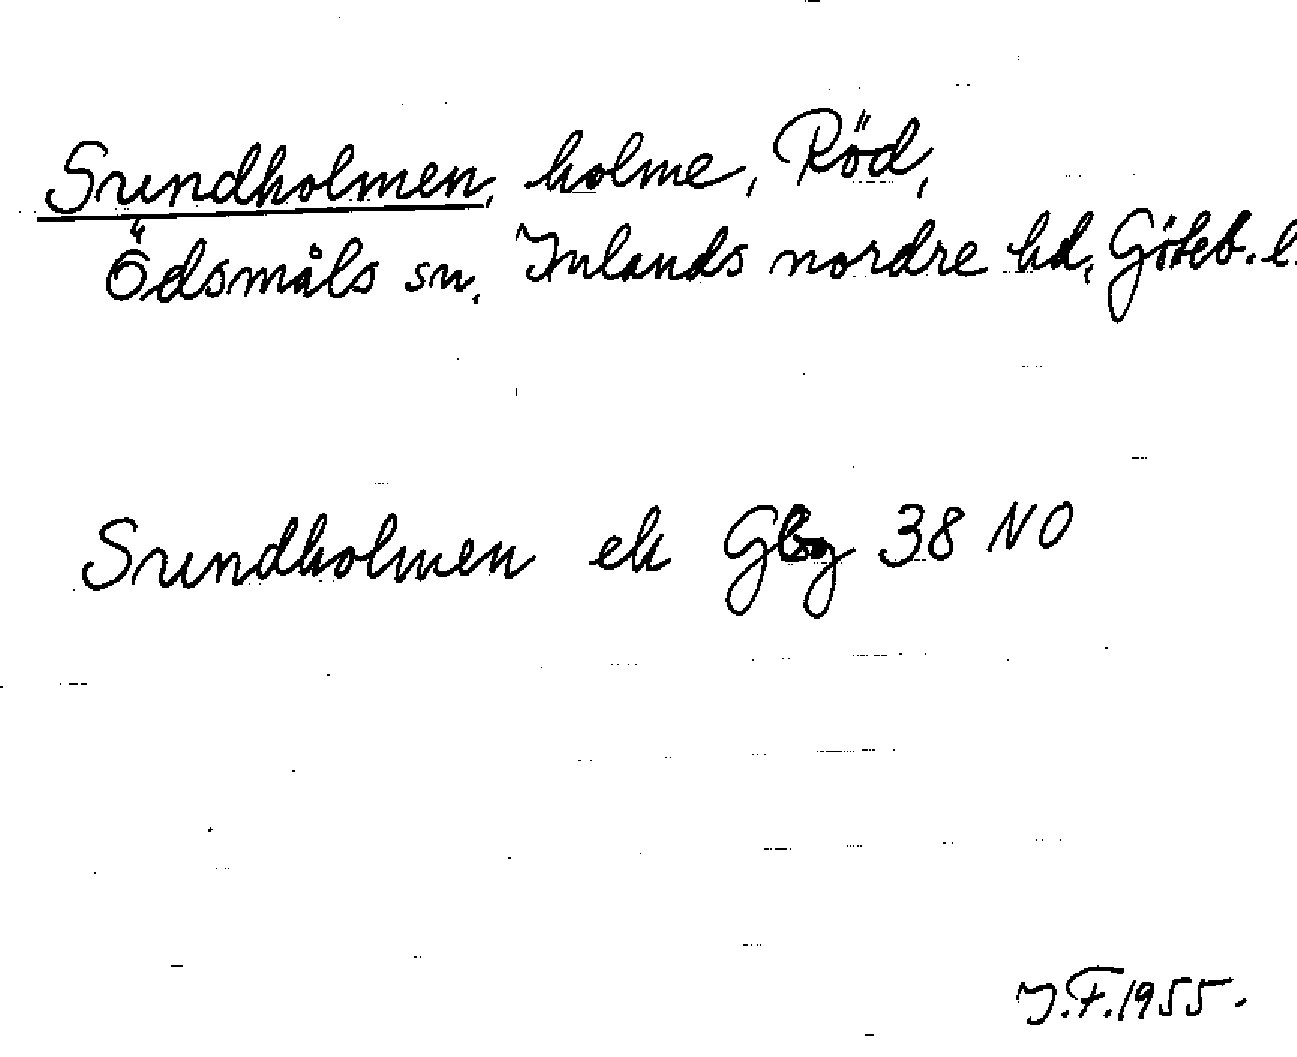 Sundholmen, holme, Röd,
Ödsmåls sn, Inlands nordre hd, Göteb. l.
Sundholmen ek Gbg 38 NO
I.F. 1955.